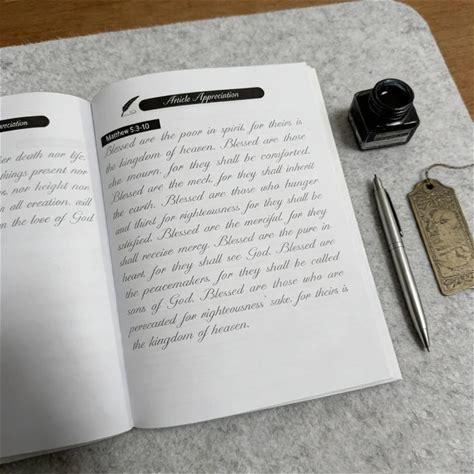 eciation
er death nor life,
things present nor
, nor height nor
n all creation, will
n the love of God
Article Appreciation
Matthew 5:3-10
Blessed are the poor in spirit, for theirs is
the kingdom of heaven. Blessed are those
who mourn, for they shall be comforted.
Blessed are the meek, for they shall inherit
the earth. Blessed are those who hunger
and thirst for righteousness, for they shall be
satisfied. Blessed are the merciful, for they
shall receive mercy. Blessed are the pure in
heart, for they shall see God. Blessed are
the peacemakers, for they shall be called
sons of God. Blessed are those who are
persecuted for righteousness' sake, for theirs is
the kingdom of heaven.